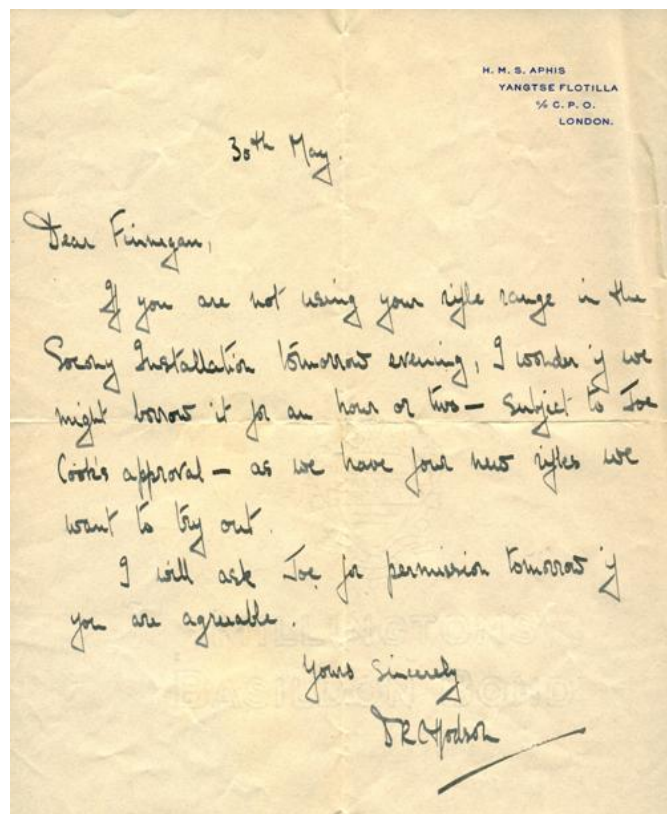 H. M. S. APHIS
YANGTSE FLOTILLA
c/o C. P. O.
LONDON.
30th May.
Dear Finnegan,
If you are not using your rifle range in the
Socony Installation tomorrow evening, I wonder if we
might borrow it for an hour or two — Subject to Joe
Cook's approval — as we have four new rifles we
want to try out.
I will ask Joe for permission tomorrow if
you are agreable.
Yours Sincerely
DRCHodson
MILLINGTON'S
BASILDON BOND